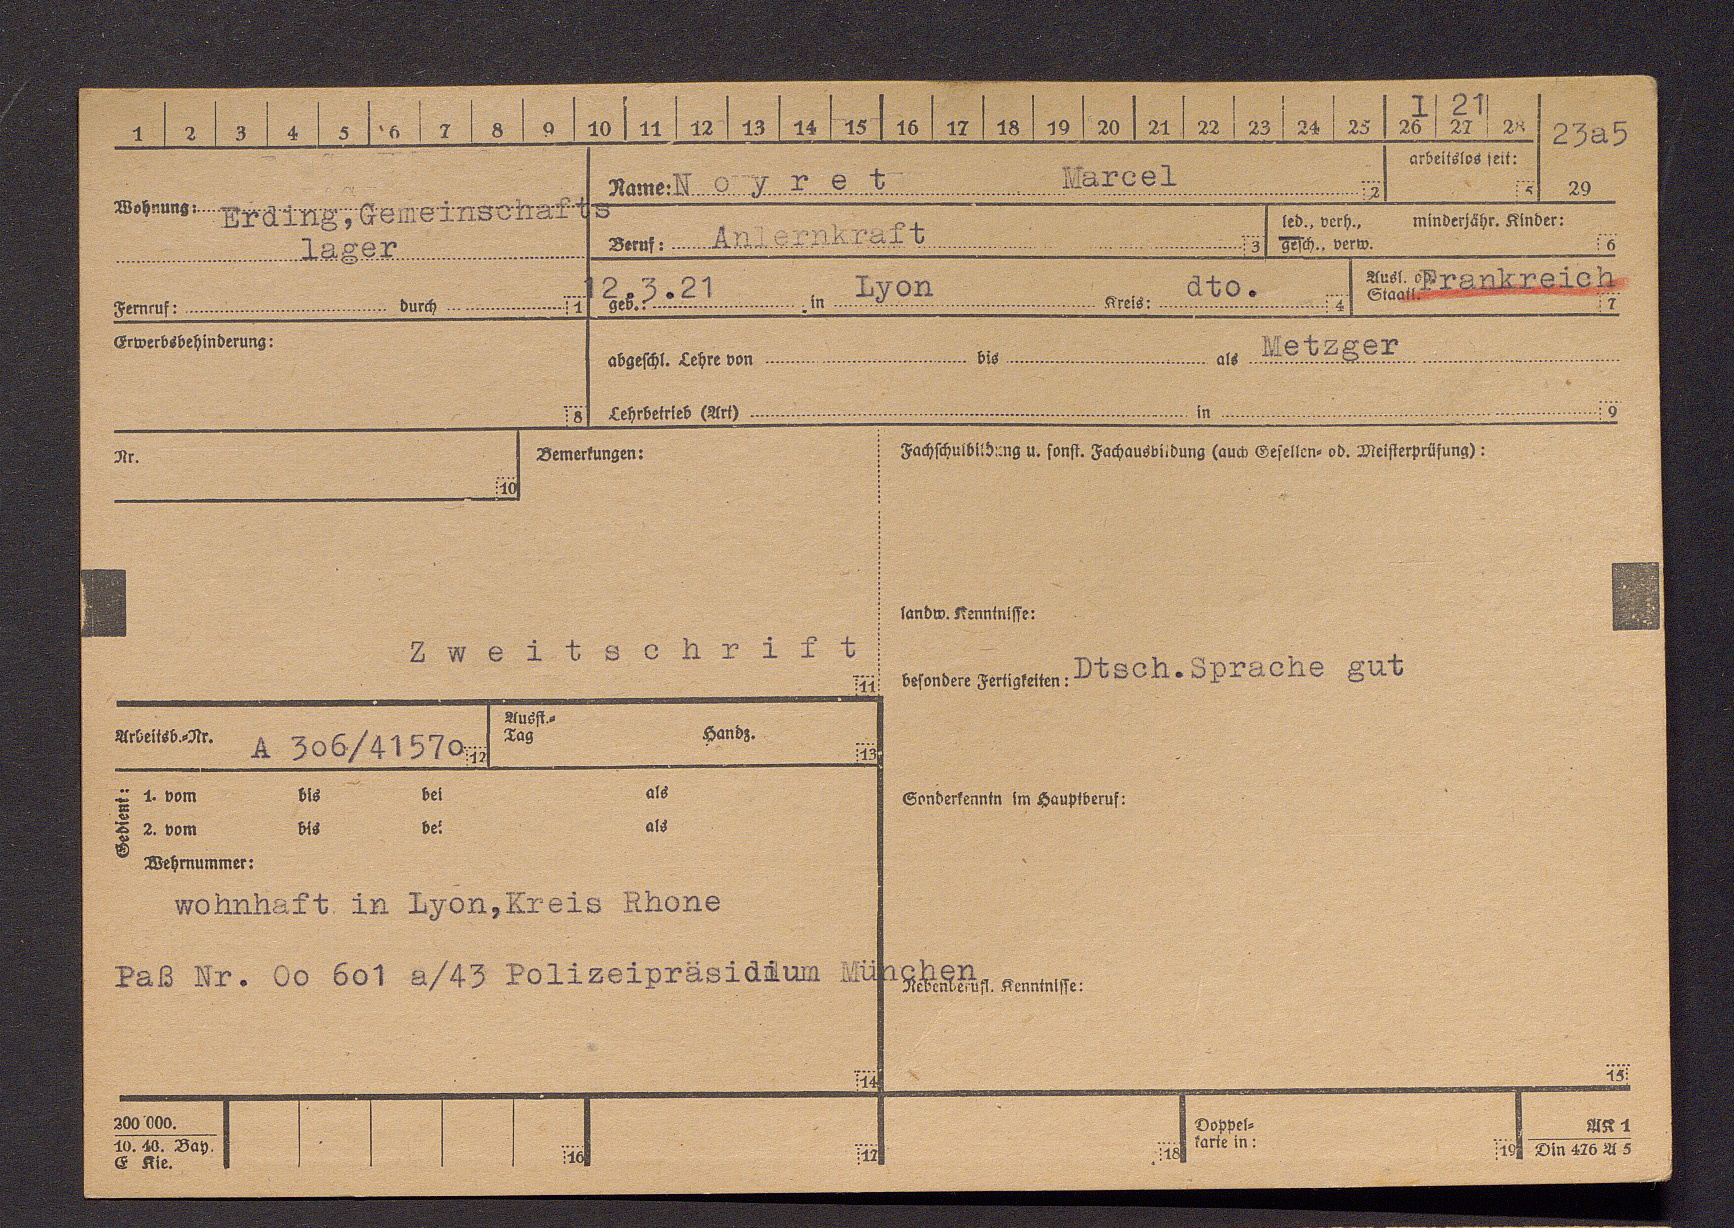 I 21
1 2 3 4 5 6 7 8 9 10 11 12 13 14 15 16 17 18 19 20 21 22 23 24 25 26 27 28 23a5
29
arbeitslos seit: 5
Name: Noyret Marcel 2
Wohnung: Erding,Gemeinschafts
lager
Beruf: Anlernkraft 3
led., verh., minderjähr. Kinder:
gesch., verw. 6
12.3.21 Lyon dto.
geb.: in Kreis: 4
Ausl. od. Frankreich
Staatl. 7
Fernruf: durch 1
Erwerbsbehinderung: 8
abgeschl. Lehre von bis als Metzger
Lehrbetrieb (Art) in 9
Nr. 10
Bemerkungen:
Zweitschrift
11
Fachschulbildung u. sonst. Fachausbildung (auch Gesellen- od. Meisterprüfung):
landw. Kenntnisse:
besondere Fertigkeiten: Dtsch.Sprache gut
Arbeitsb.-Nr. A 3o6/4157o 12
Ausst.-
Tag Handz. 13
Gedient: 1. vom bis bei als
2. vom bis bei als
Wehrnummer:
Sonderkenntn im Hauptberuf:
wohnhaft in Lyon,Kreis Rhone
Paß Nr. Oo 6o1 a/43 Polizeipräsidium München
Nebenberufl. Kenntnisse:
14 15
200 000.
10. 40. Bay.
E Kie.
16 17 18
Doppel-
karte in: 19
AK 1
Din 476 A 5